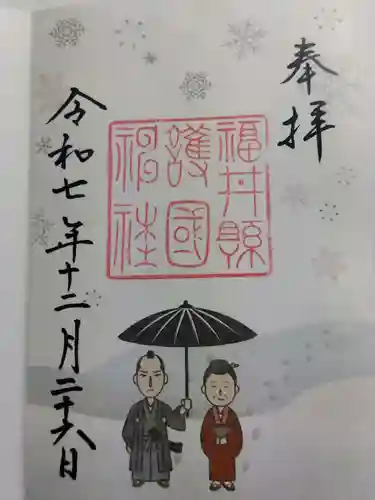 奉拝
福井縣
護國
神社
令和七年十二月二十六日